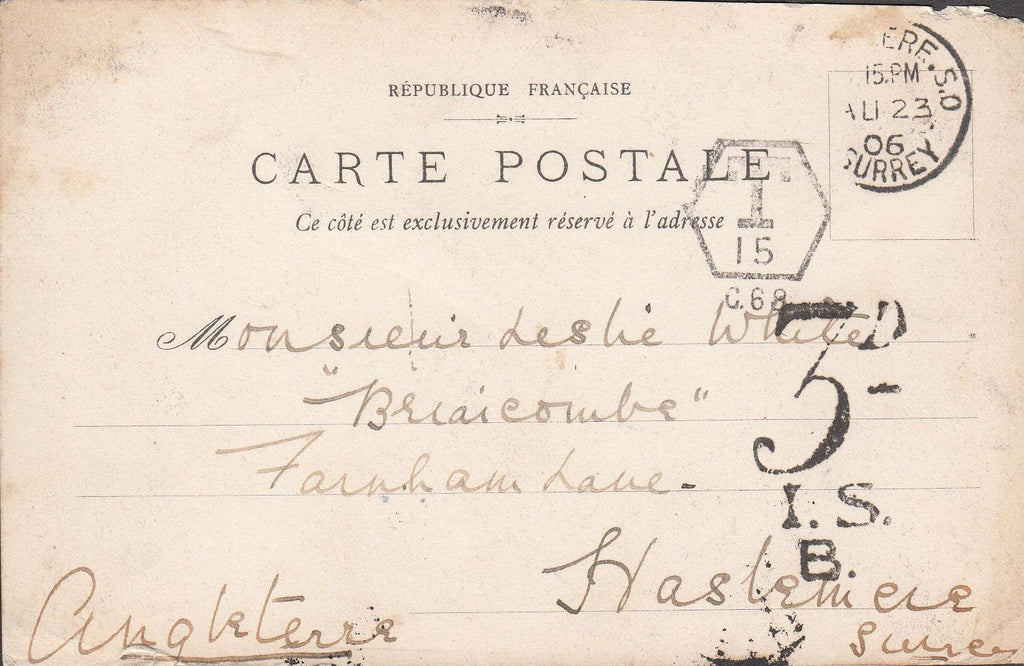 RÉPUBLIQUE FRANÇAISE
CARTE POSTALE
Ce côté est exclusivement réservé à l'adresse
ERE. S.O
15.PM
AU 23
06
SURREY
T
15
C.68
Monsieur Leslie White
"Briarcombe"
Farnham Lane-
Haslemere
Surrey
Angleterre
5D
I.S.
B.